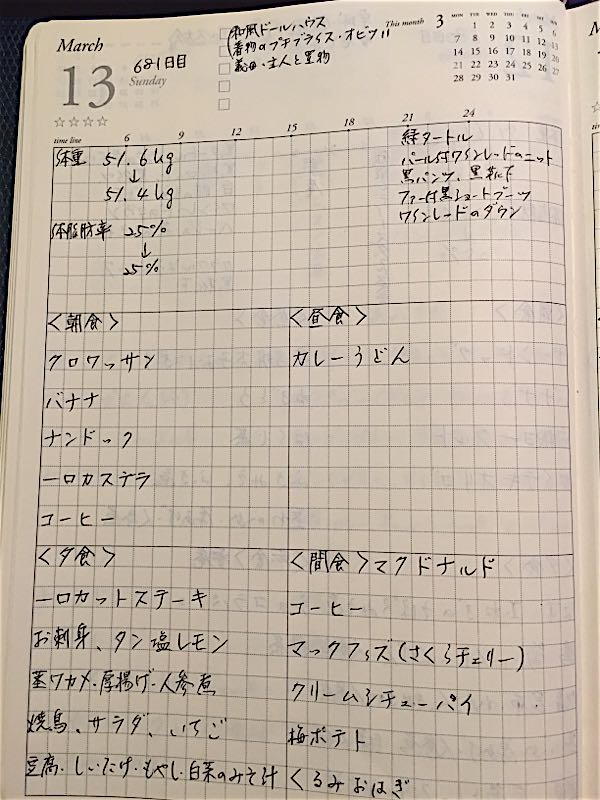 March
13
Sunday
681日目
和風ドールハウス
着物のプチブライス・オビツ11
義母・主人と買物
This month 3
MON TUE WED THU FRI SAT SUN
1 2 3 4 5 6
7 8 9 10 11 12 13
14 15 16 17 18 19 20
21 22 23 24 25 26 27
28 29 30 31
☆☆☆☆
time line 6 9 12 15 18 21 24
体重 51.6kg
↓
51.4kg
体脂肪率 25%
↓
25%
緑タートル
パール付ワインレードのニット
黒パンツ、黒靴下
ファー付黒ショートブーツ
ワインレードのダウン
<朝食>
クロワッサン
バナナ
ナンドック
一口カステラ
コーヒー
<昼食>
カレーうどん
<夕食>
一口カットステーキ
お刺身、タン塩レモン
茎ワカメ・厚揚げ・人参煮
焼鳥、サラダ、いちご
豆腐・しいたけ・もやし・白菜のみそ汁
<間食>マクドナルド
コーヒー
マックフィズ(さくらチェリー)
クリームシチューパイ
梅ポテト
くるみおはぎ